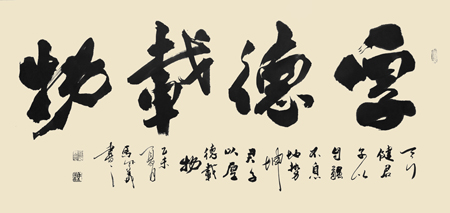 厚德載物
天行
健君
子以
自強
不息
地勢
坤
君子
以厚
德載
物
乙未
夏月
書